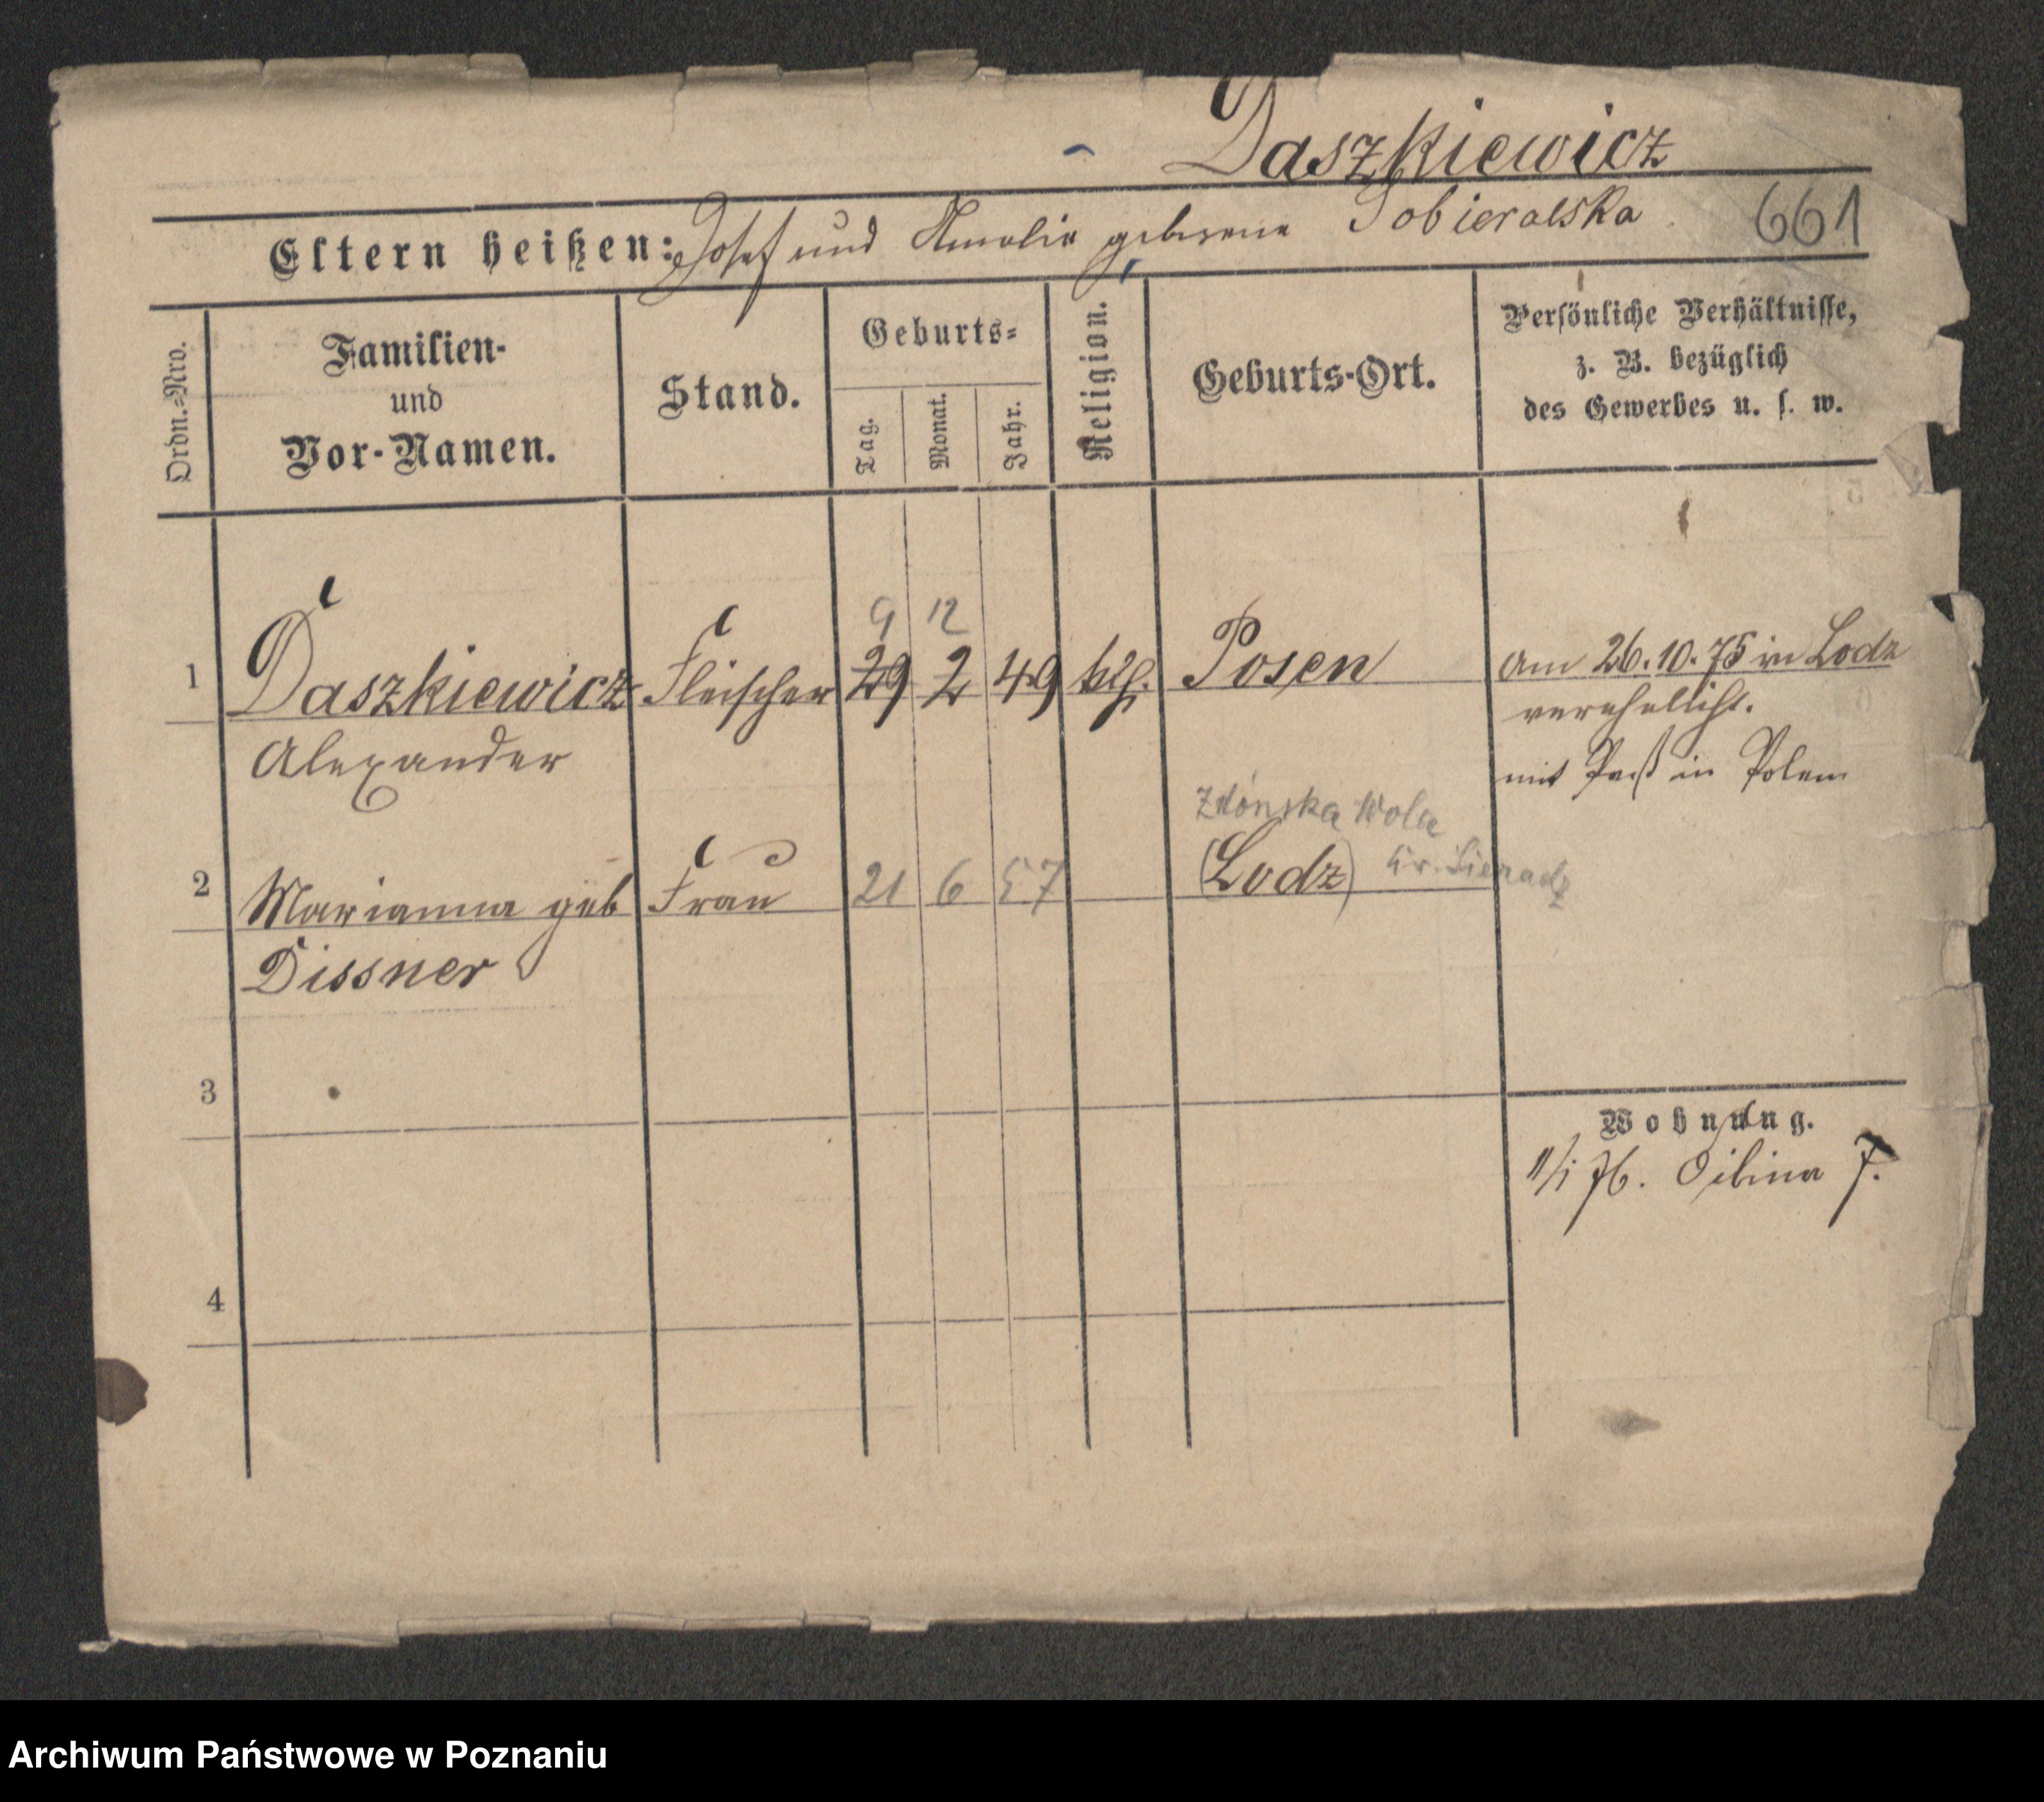 Daszkiewicz
Eltern heißen: Josef und Amalie geborene Sobieralska
661
Ordn.-Nro.
Familien-
und
Vor-Namen.
Stand.
Geburts-
Tag.
Monat.
Jahr.
Religion.
Geburts-Ort.
Persönliche Verhältnisse,
z. B. bezüglich
des Gewerbes u. s. w.
9 12
1 Daszkiewicz Fleischer 29 2 49 kth. Posen
Alexander
am 26.10.75 in Lodz
verehelicht.
mit Paß in Polen
Zdónska Wola
2 Marianna geb Frau 21 6 57 (Lodz) Kr. Sieradz
Dissner
3
4
Wohnung.
11/1 76. 7.
Archiwum Państwowe w Poznaniu